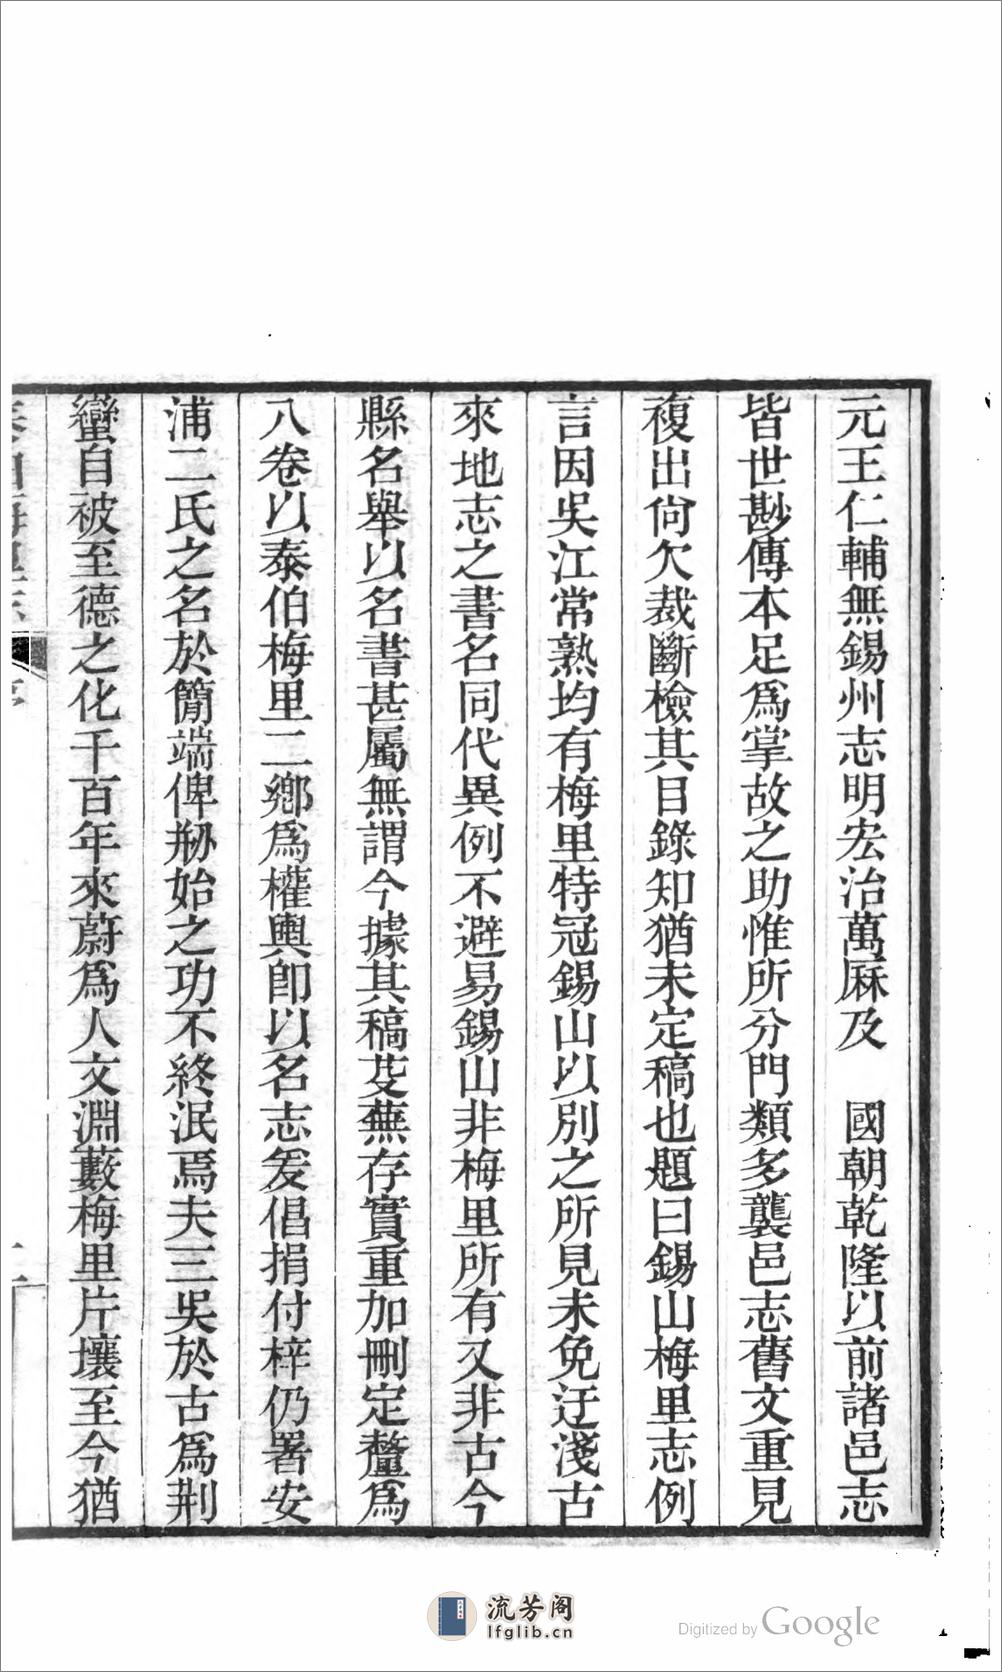 元王仁輔無錫州志明宏治萬厤及　國朝乾隆以前諸邑志
皆世尠傳本足爲掌故之助惟所分門類多襲邑志舊文重見
複出尙欠裁斷檢其目錄知猶未定稿也題曰錫山梅里志例
言因吳江常熟均有梅里特冠錫山以別之所見未免迂淺古
來地志之書名同代異例不避易錫山非梅里所有又非古今
縣名舉以名書甚屬無謂今據其稿芟蕪存實重加刪定釐爲
八卷以泰伯梅里二鄕爲權輿卽以名志爰倡捐付梓仍署安
浦二氏之名於簡端俾剙始之功不終泯焉夫三吳於古爲荆
蠻自被至德之化千百年來蔚爲人文淵藪梅里片壤至今猶
流芳阁
lfglib.cn
Digitized by Google